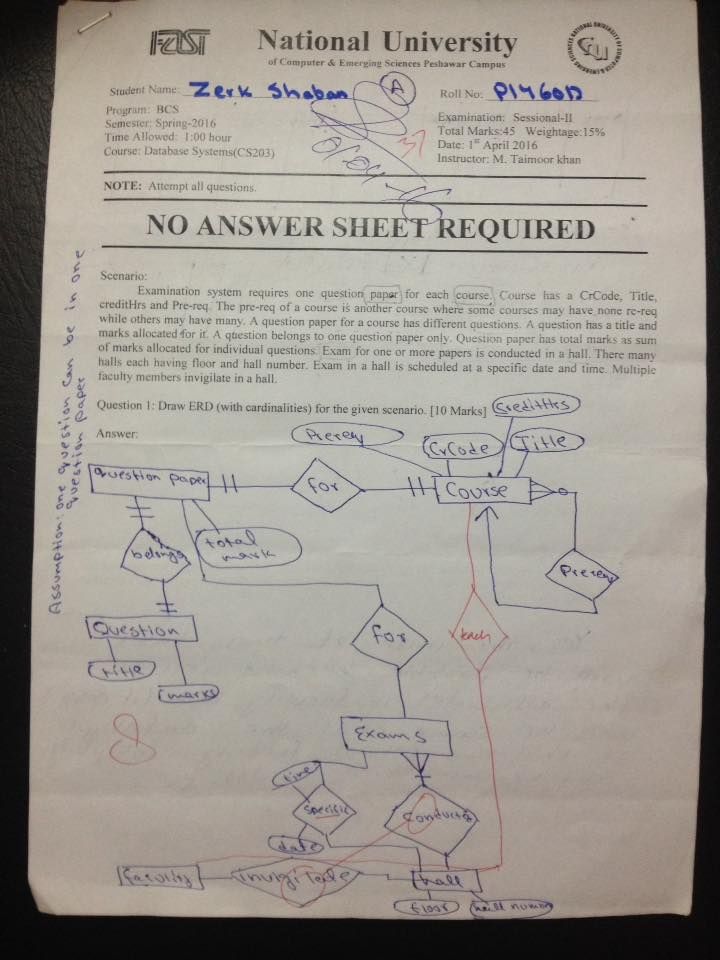 FAST
National University
of Computer & Emerging Sciences Peshawar Campus
Student Name: Zerk Shaban
A
Roll No: P146011
Program: BCS
Semester: Spring-2016
Time Allowed: 1:00 hour
Course: Database Systems(CS203)
37
Examination: Sessional-II
Total Marks:45 Weightage:15%
Date: 1st April 2016
Instructor: M. Taimoor khan
NOTE: Attempt all questions.
NO ANSWER SHEET REQUIRED
Scenario:
Examination system requires one question paper for each course. Course has a CrCode, Title,
creditHrs and Pre-req. The pre-req of a course is another course where some courses may have none re-req
while others may have many. A question paper for a course has different questions. A question has a title and
marks allocated for it. A question belongs to one question paper only. Question paper has total marks as sum
of marks allocated for individual questions. Exam for one or more papers is conducted in a hall. There many
halls each having floor and hall number. Exam in a hall is scheduled at a specific date and time. Multiple
faculty members invigilate in a hall.
Question 1: Draw ERD (with cardinalities) for the given scenario. [10 Marks]
Answer:
Assumption: one question can be in one
question paper
CreditHrs
Prereq
CrCode
Title
Question paper
for
Course
belongs
total
mark
Prereq
Question
for
teach
title
marks
8
Exams
time
specific
Conducted
date
faculty
invigilate
hall
floor
hall number